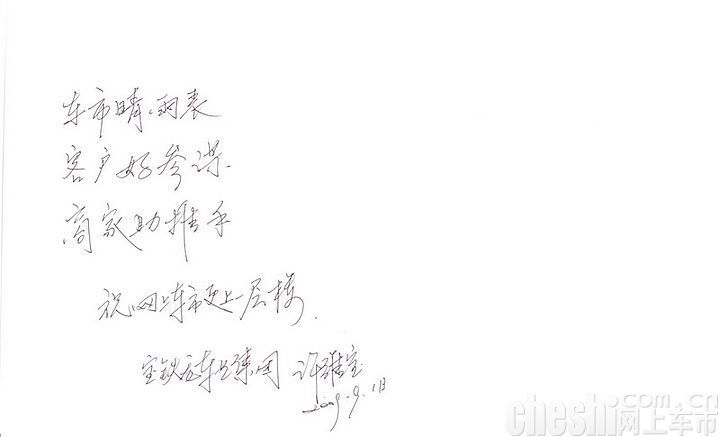 车市晴雨表
客户好参谋
商家助推手
祝网上车市更上一层楼.
2009.9.1日
cheshi.com.cn
网上车市